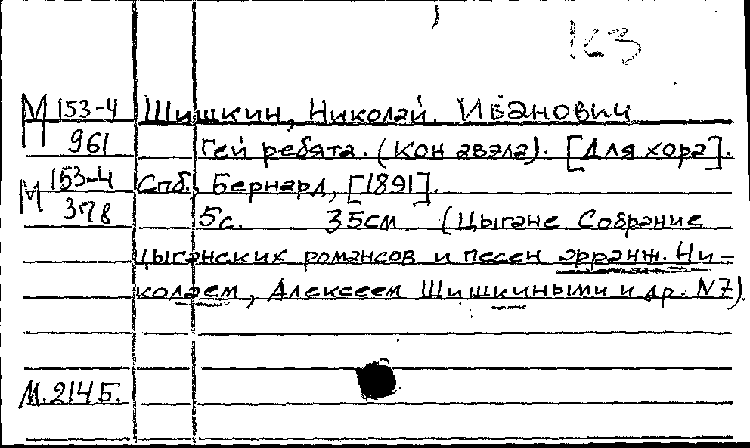 163
М 153-4 Шишкин, Николай Иванович
961 Гей ребята. (Кон авэла). [Для хора].
М 153-4 Спб., Бернард, [1891].
378 5с. 35см (Цыгане Собрание
цыганских романсов и песен арранж. Ни-
колаем, Алексеем Шишкиными и др. N7)
М.214Б.